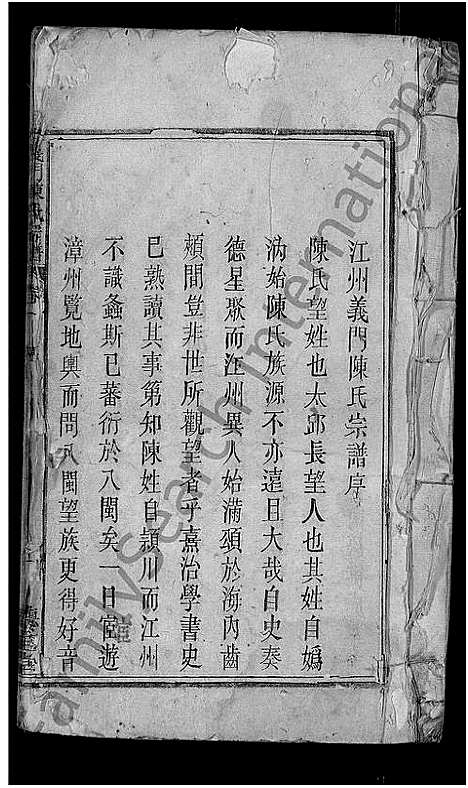 江州義門陳氏宗譜序
陳氏望姓也太邱長望人也其姓自媯
汭始陳氏族源不亦遠且大哉自史奏
德星聚而江州異人始滿頌於海內齒
頰間豈非世所觀望者乎熹治學書史
已熟讀其事第知陳姓自潁川而江州
不識螽斯已蕃衍於八閩矣一日宦遊
漳州覽地輿而問八閩望族更得好音
FamilySearch International